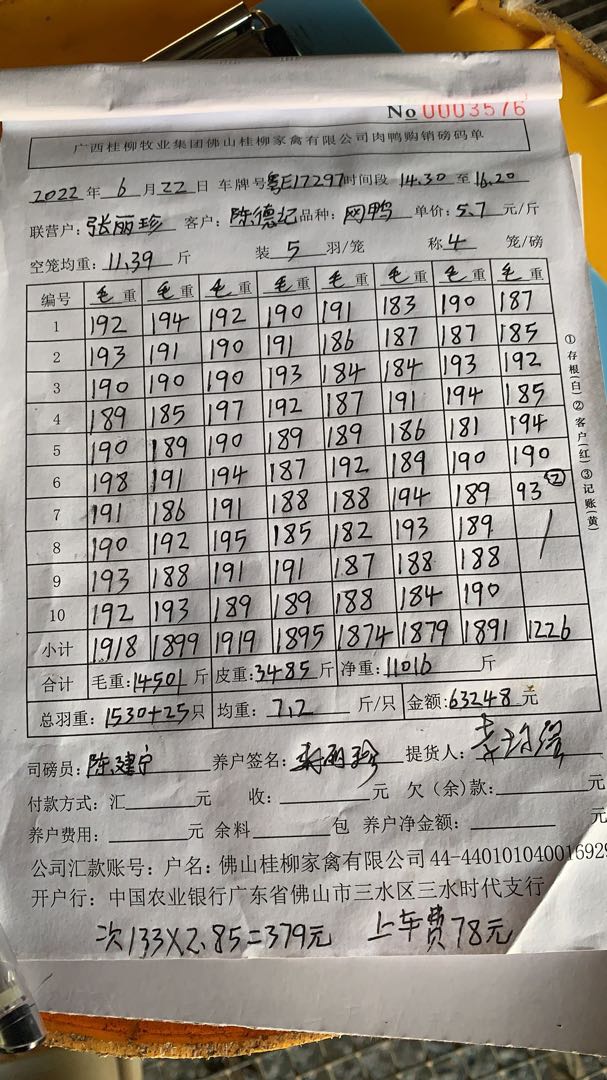 No 0003576
广西桂柳牧业集团佛山桂柳家禽有限公司肉鸭购销磅码单
2022年6月22日 车牌号粤E17297时间段 14.30至16.20
联营户：张丽珍 客户：陈德记 品种：网鸭 单价：5.7元/斤
空笼均重：11.39斤 装5羽/笼 称4笼/磅
编号 毛重 毛重 毛重 毛重 毛重 毛重 毛重 毛重
1 192 194 192 190 191 183 190 187
2 193 191 190 191 186 187 187 185
3 190 190 190 193 184 184 193 192
4 189 185 197 192 187 191 194 185
5 190 189 190 189 189 186 181 194
6 198 191 194 187 192 189 190 190
7 191 186 191 188 188 194 189 93②
8 190 192 195 185 182 193 189
9 193 188 191 191 187 188 188
10 192 193 189 189 188 184 190
小计 1918 1899 1919 1895 1874 1879 1891 1226
合计 毛重：14501斤 皮重：3485斤 净重：11016斤
总羽重：1530+25只 均重：7.2斤/只 金额：63248元
司磅员：陈建宁 养户签名： 提货人：
付款方式：汇 元 收： 元 欠（余）款： 元
养户费用： 元 余料 包 养户净金额： 元
公司汇款账号：户名：佛山桂柳家禽有限公司 44-440101040016929
开户行：中国农业银行广东省佛山市三水区三水时代支行
次133×2.85=379元 上车费78元
①存根（白）②客户（红）③记账（黄）